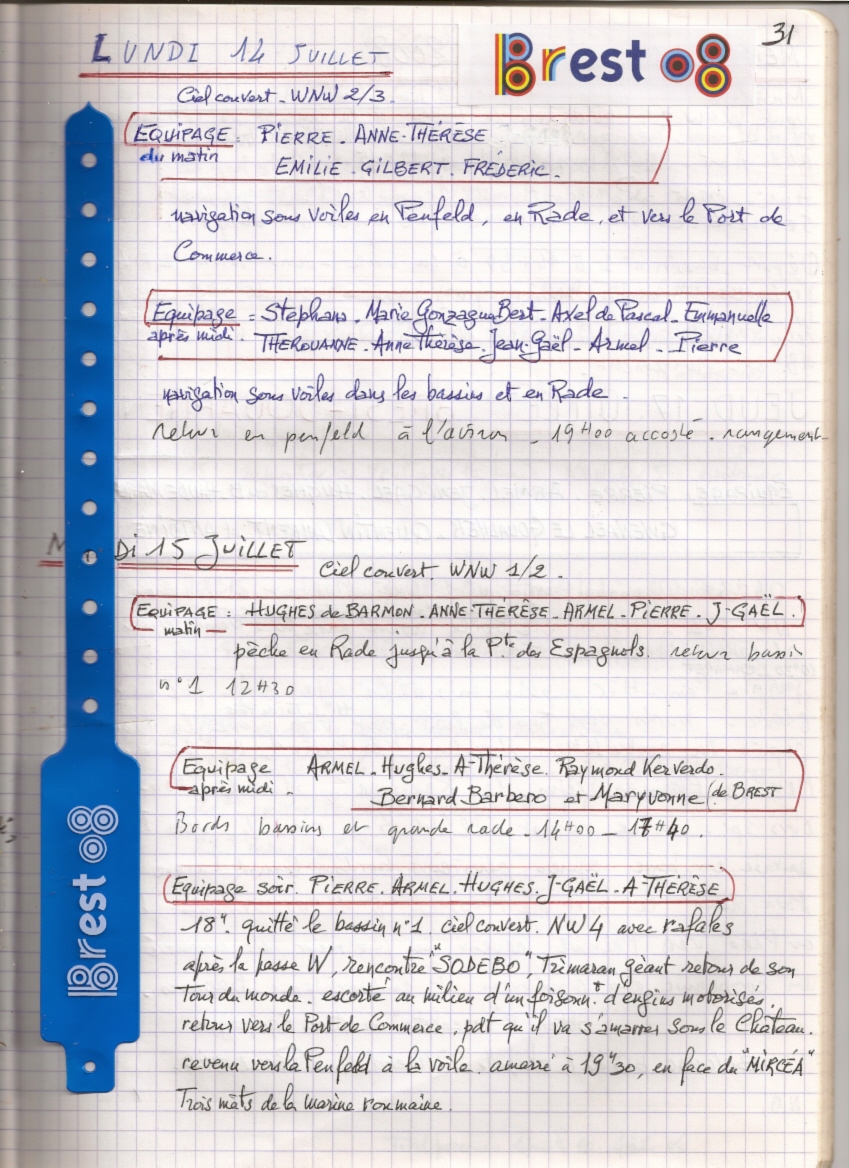 31
LUNDI 14 JUILLET
Brest 08
Ciel couvert - WNW 2/3.
EQUIPAGE : PIERRE - ANNE-THÉRÈSE
du matin
EMILIE - GILBERT - FRÉDERIC -
navigation sous voiles en Penfeld, en Rade, et vers le Port de
Commerce.
Equipage = Stephans - Marie Gonzagua Bert - Axel de Pascal - Emmanuelle
après midi - THEROUANNE - Anne Thérèse - Jean-Gaël - Armel - Pierre
navigation sous voiles dans les bassins et en Rade -
retour en penfeld à l'aviron - 19H00 accosté - rangement-
M DI 15 JUILLET
Ciel couvert. WNW 1/2 -
EQUIPAGE : HUGHES de BARMON - ANNE-THÉRÈSE - ARMEL - PIERRE - J-GAËL.
matin
pèche en Rade jusqu'à la Pte des Espagnols. retour bassin
n°1 12H30
Equipage ARMEL - Hughes - A-Thérèse. Raymond Kerverdo.
après midi -
Bernard Barbero et Maryvonne (de BREST
Bords bassins et grande rade - 14H00 - 17H40.
Equipage soir. PIERRE. ARMEL. HUGHES. J-GAËL. A-THÉRÈSE
18H. quitté le bassin n°1 ciel couvert. NW4 avec rafales
après la passe W, rencontré "SODEBO", Trimaran géant retour de son
Tour du monde. escorté au milieu d'un foisonnt d'engins motorisés.
retour vers le Port de Commerce, pdt qu'il va s'amarrer sous le Château.
revenu vers la Penfeld à la voile. amarré à 19H30, en face du "MIRCÉA"
Trois mâts de la marine roumaine.
Brest 08